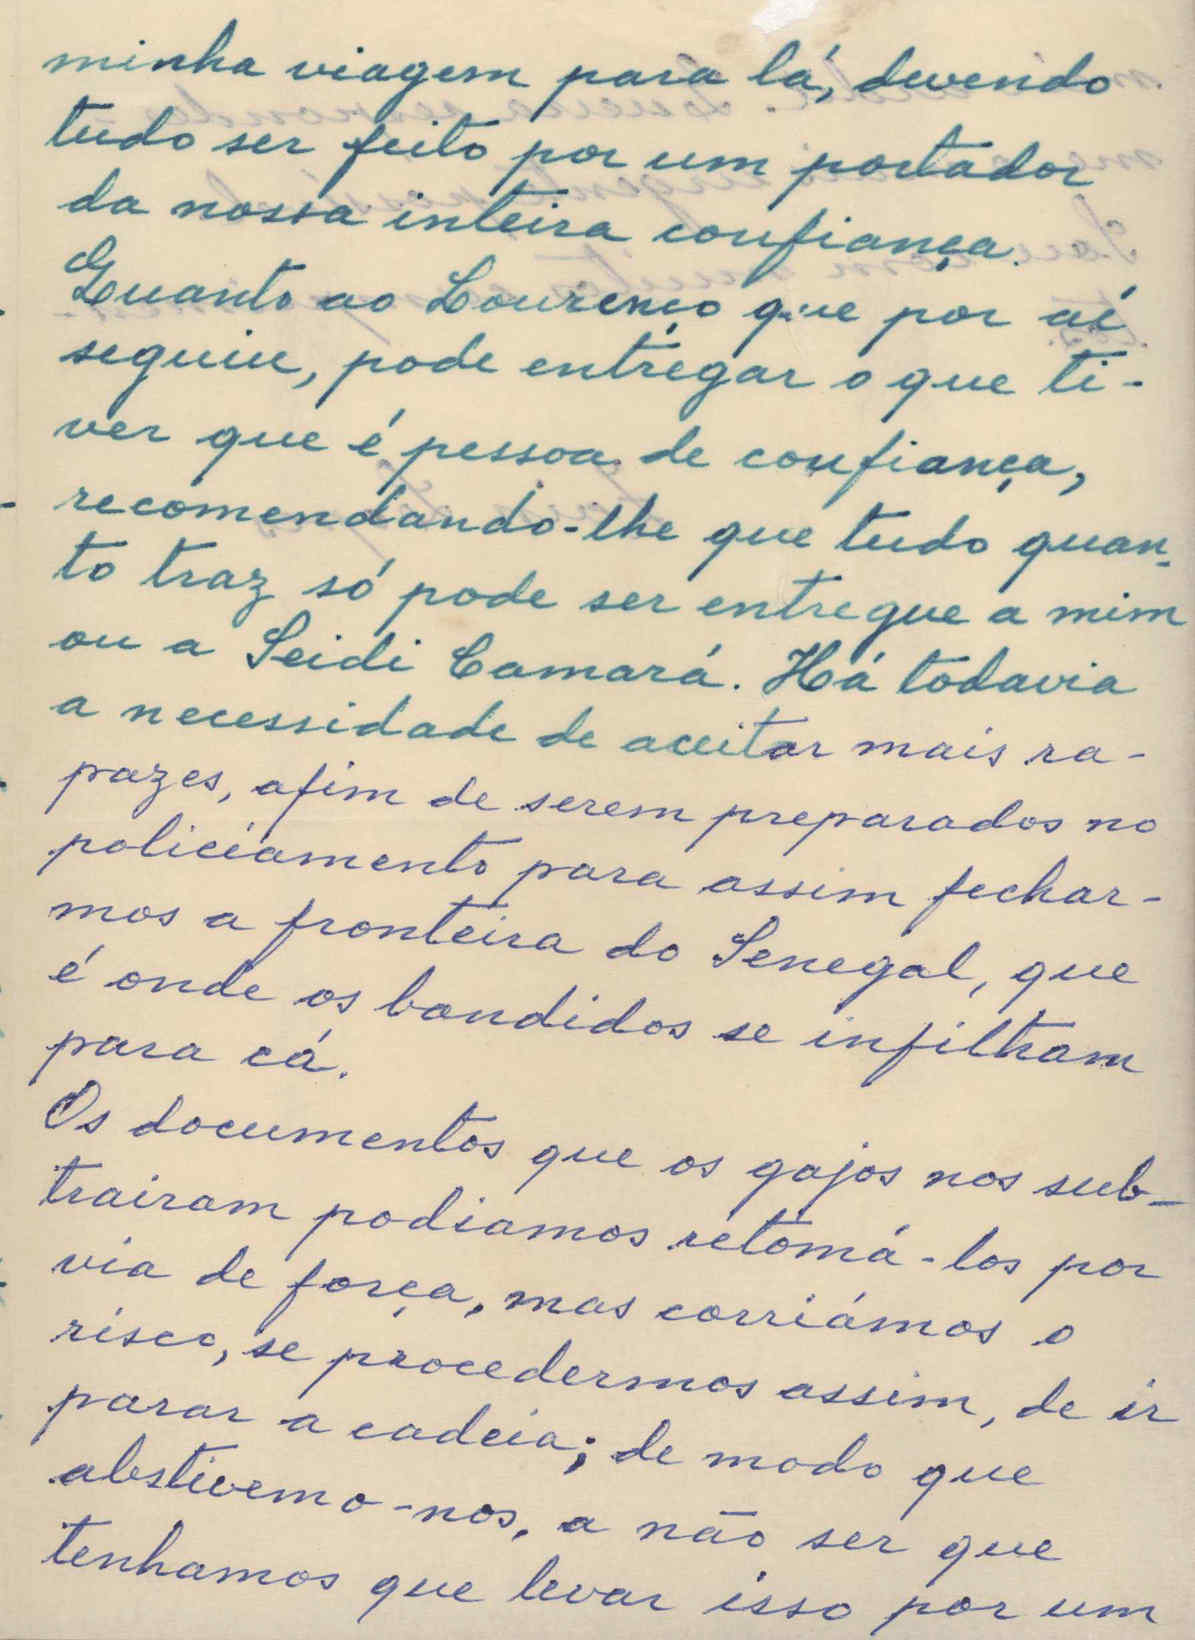 minha viagem para lá, devendo
tudo ser feito por um portador
da nossa inteira confiança.
Quanto ao Lourenço que por aí
seguiu, pode entregar o que ti-
ver que é pessoa de confiança,
recomendando-lhe que tudo quan-
to traz só pode ser entregue a mim
ou a Seidi Camará. Há todavia
a necessidade de aceitar mais ra-
pazes, afim de serem preparados no
policiamento para assim fechar-
mos a fronteira do Senegal, que
é onde os bandidos se infiltram
para cá.
Os documentos que os gajos nos sub-
trairam podiamos retomá-los por
via de força, mas corriámos o
risco, se procedermos assim, de ir
parar a cadeia; de modo que
abstivemo-nos, a não ser que
tenhamos que levar isso por um